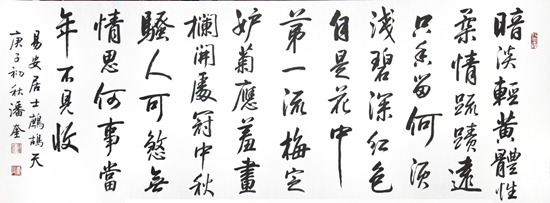 暗淡輕黃體性
柔情疏蹟遠
只香留何須
淺碧深紅色
自是花中
第一流梅定
妒菊應羞畫
欄開處冠中秋
騷人可煞無
情思何事當
年不見收
易安居士鷓鴣天
庚子初秋潘奎